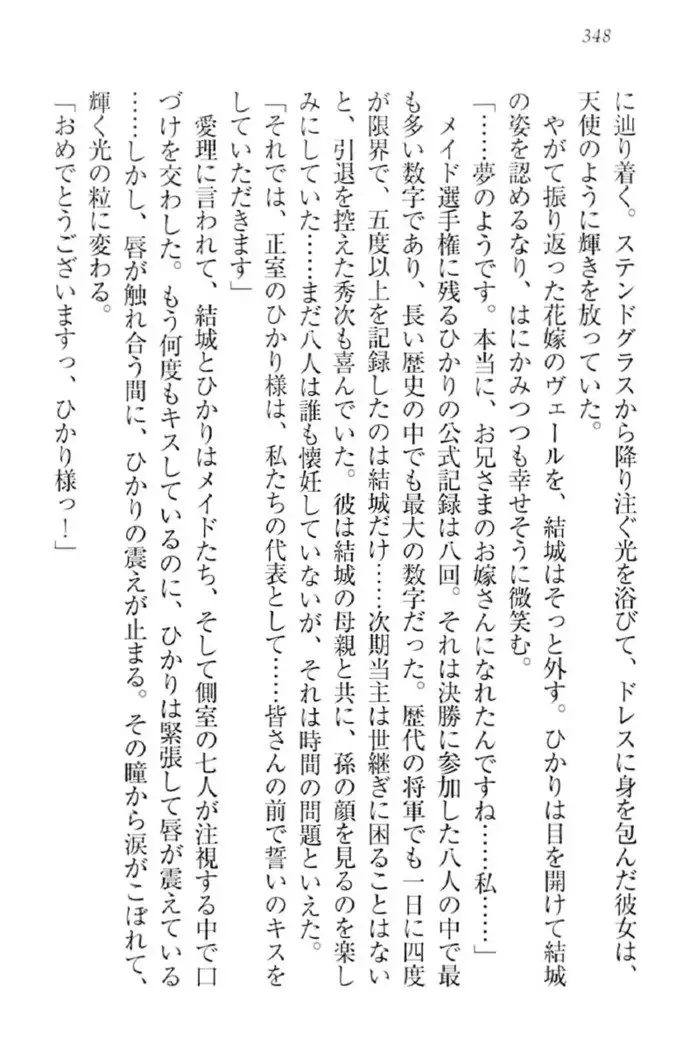 348
に辿り着く。ステンドグラスから降り注ぐ光を浴びて、ドレスに身を包んだ彼女は、
天使のように輝きを放っていた。
やがて振り返った花嫁のヴェールを、結城はそっと外す。ひかりは目を開けて結城
の姿を認めるなり、はにかみつつも幸せそうに微笑む。
「……夢のようです。本当に、お兄さまのお嫁さんになれたんですね……私……」
メイド選手権に残るひかりの公式記録は八回。それは決勝に参加した八人の中で最
も多い数字であり、長い歴史の中でも最大の数字だった。歴代の将軍でも一日に四度
が限界で、五度以上を記録したのは結城だけ……次期当主は世継ぎに困ることはない
と、引退を控えた秀次も喜んでいた。彼は結城の母親と共に、孫の顔を見るのを楽し
みにしていた……まだ八人は誰も懐妊していないが、それは時間の問題といえた。
「それでは、正室のひかり様は、私たちの代表として……皆さんの前で誓いのキスを
していただきます」
愛理に言われて、結城とひかりはメイドたち、そして側室の七人が注視する中で口
づけを交わした。もう何度もキスしているのに、ひかりは緊張して唇が震えている
……しかし、唇が触れ合う間に、ひかりの震えが止まる。その瞳から涙がこぼれて、
輝く光の粒に変わる。
「おめでとうございますっ、ひかり様っ！」